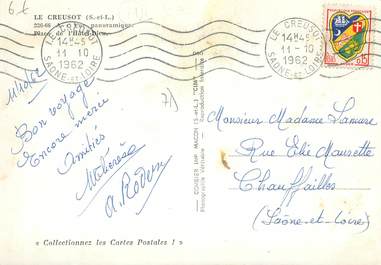 6 €
LE CREUSOT (S.-et-L.)
226-66 A - Vue panoramique
Place de l'Hôtel-Dieu
LE CREUSOT
14H45
11-10
1962
SAONE-et-LOIRE
LE CREUSOT
14H45
11-10
1962
SAONE-et-LOIRE
0,15
71)
Bon voyage
Encore merci
Amitiés
COMBIER IMP. MACON (S.-et-L.) "CIM"
Photographie Véritable
Reproduction Interdite
Monsieur Madame Lamure
Rue Elie Maurette
Chauffailles
(Saône-et-Loire)
« Collectionnez les Cartes Postales ! »